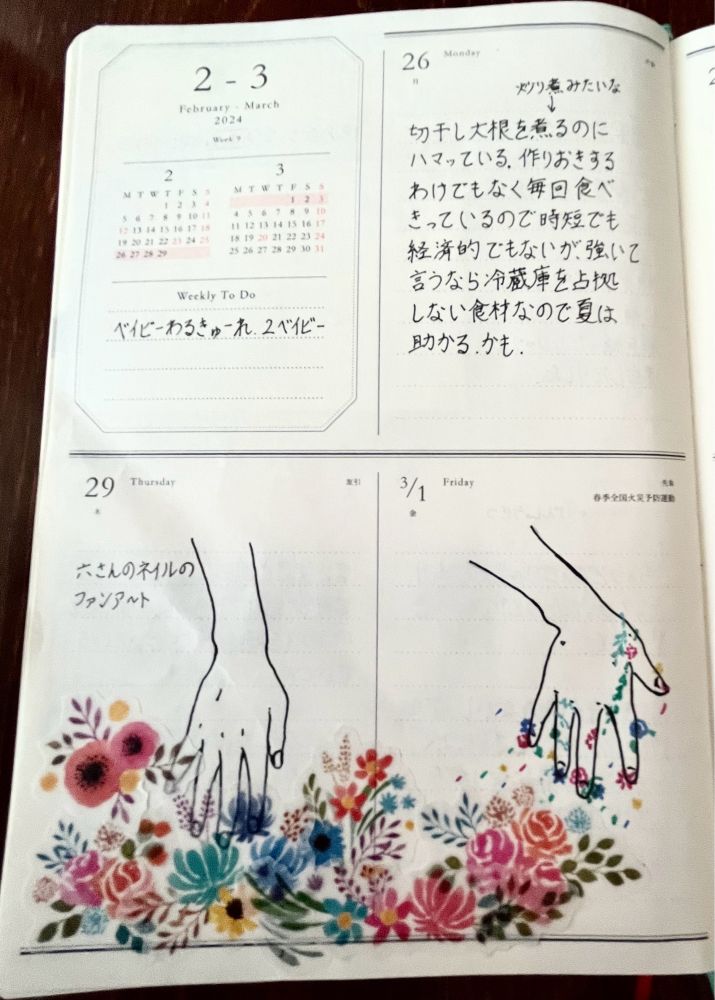 2 - 3
February - March
2024
Week 9
2
M T W T F S S
1 2 3 4
5 6 7 8 9 10 11
12 13 14 15 16 17 18
19 20 21 22 23 24 25
26 27 28 29
3
M T W T F S S
1 2 3
4 5 6 7 8 9 10
11 12 13 14 15 16 17
18 19 20 21 22 23 24
25 26 27 28 29 30 31
Weekly To Do
ベイビーわるきゅーれ. 2ベイビー
26 Monday
月
炒り煮みたいな
↓
切干し大根を煮るのに
ハマッている. 作りおきする
わけでもなく毎回食べ
きっているので時短でも
経済的でもないが、強いて
言うなら冷蔵庫を占拠
しない食材なので夏は
助かる.かも.
29 Thursday
友引
木
六さんのネイルの
ファンアート
3/1 Friday
先負
金
春季全国火災予防運動